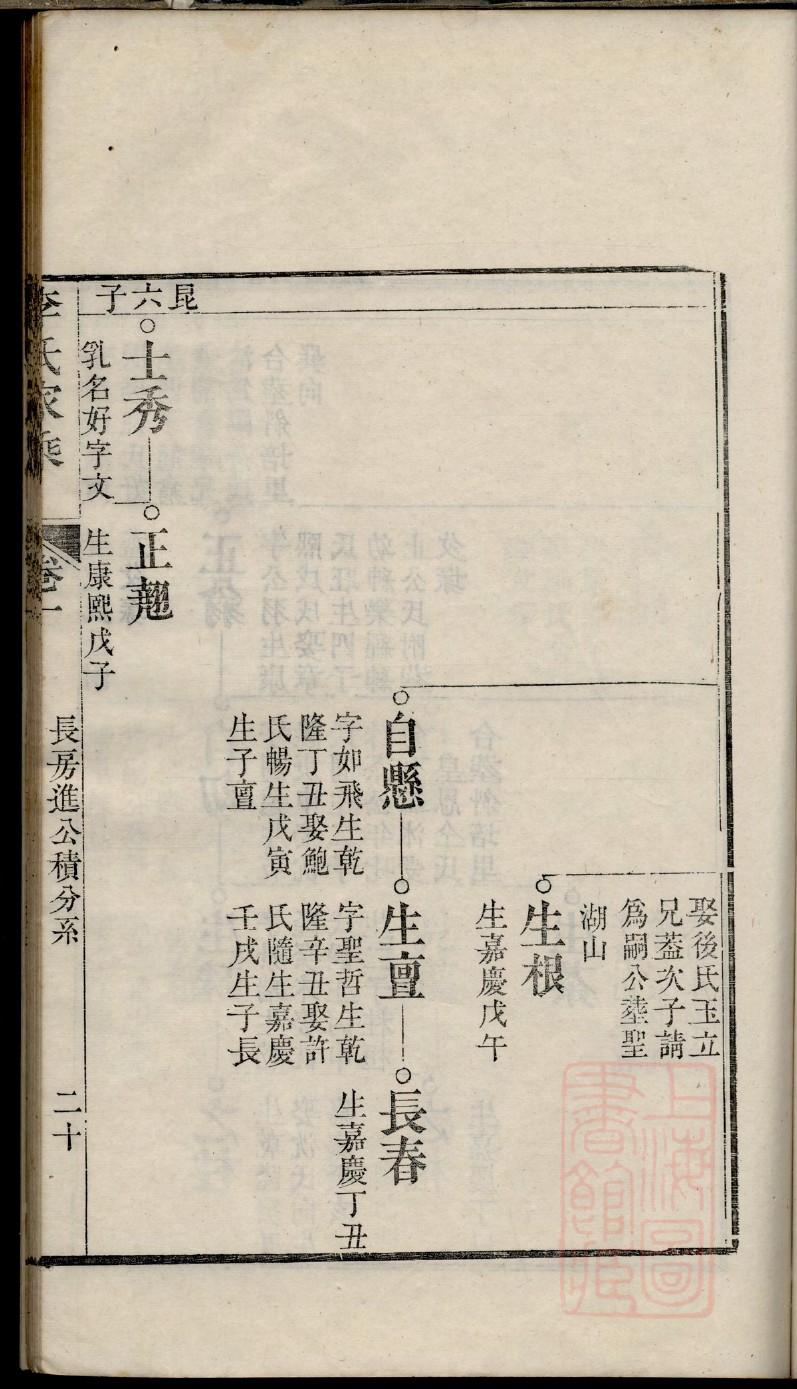 娶後氏玉立
兄葢次子請
爲嗣公塟聖
湖山
生根
生嘉慶戊午
自懸
字如飛生乾
隆丁丑娶鮑
氏暢生戊寅
生子亶
生亶
字聖哲生乾
隆辛丑娶許
氏隨生嘉慶
壬戌生子長
長春
生嘉慶丁丑
昆六子
士秀
乳名好字文
正翹
生康熙戊子
李氏家乘
卷一
長房進公積分系
二十
上海圖
書館藏